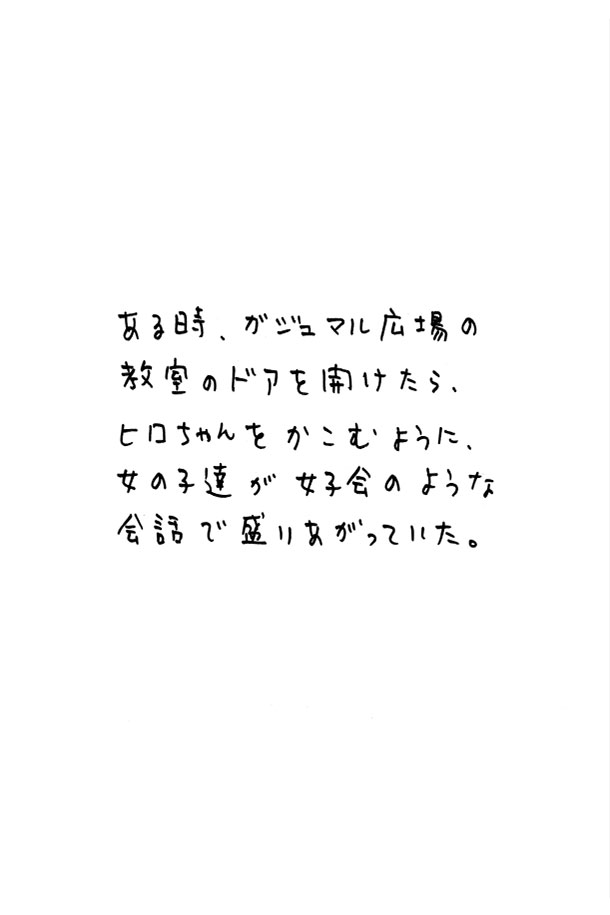 ある時、ガジュマル広場の
教室のドアを開けたら、
ヒロちゃんをかこむように、
女の子達が女子会のような
会話で盛りあがっていた。